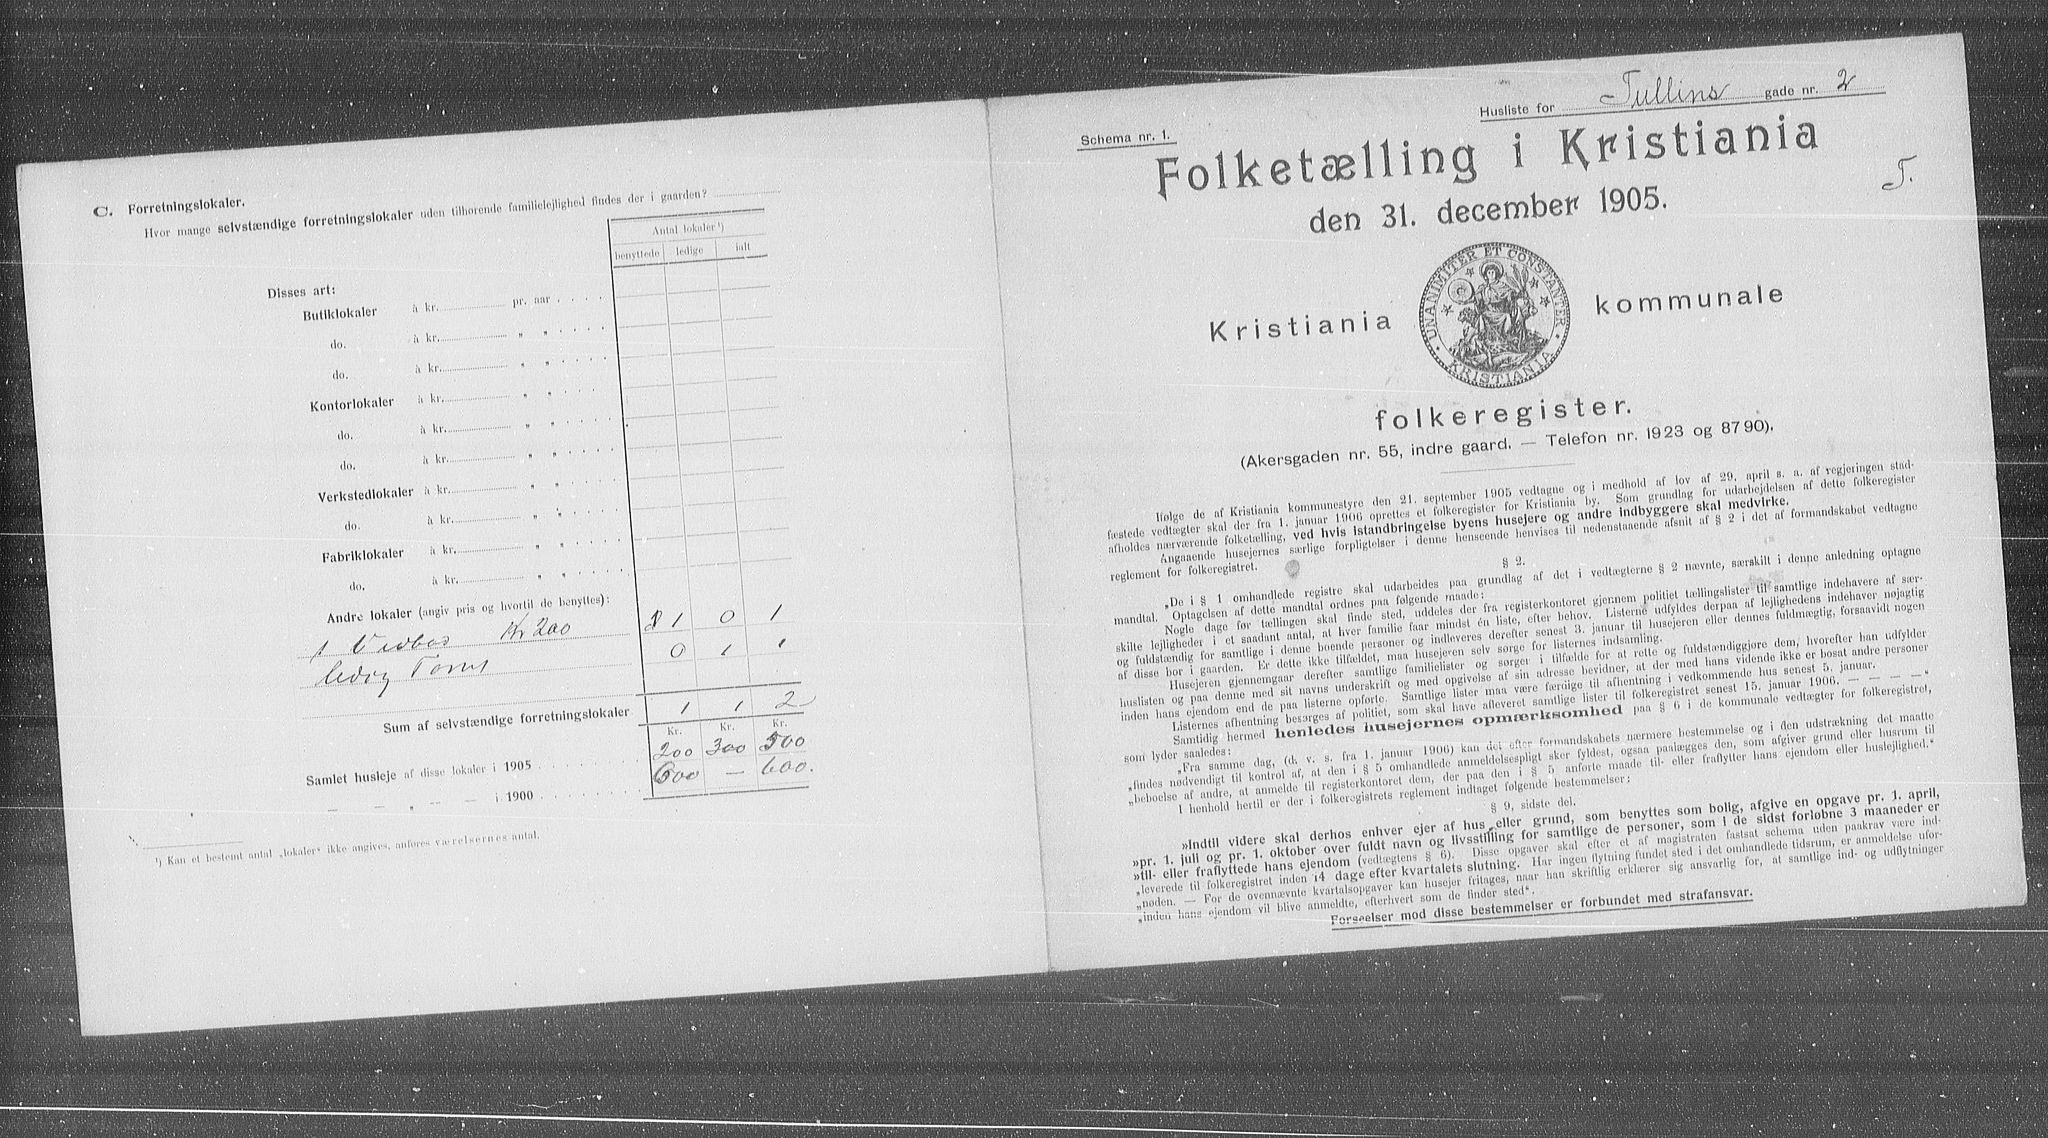 C. Forretningslokaler.
Hvor mange selvstændige forretningslokaler uden tilhørende familielejlighed findes der i gaarden?
Antal lokaler ¹)
benyttede ledige ialt
Disses art:
Butiklokaler à kr. pr. aar
do. à kr. " "
do. à kr. " "
Kontorlokaler à kr. " "
do. à kr. " "
do. à kr. " "
Verkstedlokaler à kr. " "
do. à kr. " "
Fabriklokaler à kr. " "
do. à kr. " "
Andre lokaler (angiv pris og hvortil de benyttes):
1 Vedbod Kr 200 1 0 1
ledig 0 1 1
Sum af selvstændige forretningslokaler 1 1 2
Kr. Kr. Kr.
Samlet husleje af disse lokaler i 1905 200 300 500
— — „ — — i 1900 600 — 600.
¹) Kan et bestemt antal „lokaler“ ikke angives, anføres værelsernes antal.
Husliste for Tullins gade nr. 2
Schema nr. 1.
Folketælling i Kristiania
den 31. december 1905.
T.
UNANIMITER ET CONSTANTER
KRISTIANIA
Kristiania kommunale
folkeregister.
(Akersgaden nr. 55, indre gaard. — Telefon nr. 1923 og 8790).
Ifølge de af Kristiania kommunestyre den 21. september 1905 vedtagne og i medhold af lov af 29. april s. a. af regjeringen stad-
fæstede vedtægter skal der fra 1. januar 1906 oprettes et folkeregister for Kristiania by. Som grundlag for udarbejdelsen af dette folkeregister
afholdes nærværende folketælling, ved hvis istandbringelse byens husejere og andre indbyggere skal medvirke.
Angaaende husejernes særlige forpligtelser i denne henseende henvises til nedenstaaende afsnit af § 2 i det af formandskabet vedtagne
reglement for folkeregistret.
§ 2.
„De i § 1 omhandlede registre skal udarbeides paa grundlag af det i vedtægterne § 2 nævnte, særskilt i denne anledning optagne
mandtal. Optagelsen af dette mandtal ordnes paa følgende maade:
Nogle dage før tællingen skal finde sted, uddeles der fra registerkontoret gjennem politiet tællingslister til samtlige indehavere af sær-
skilte lejligheder i et saadant antal, at hver familie faar mindst én liste, efter behov. Listerne udfyldes derpaa af lejlighedens indehaver nøjagtig
og fuldstændig for samtlige i denne boende personer og indleveres derefter senest 3. januar til husejeren eller dennes fuldmægtig, forsaavidt nogen
af disse bor i gaarden. Er dette ikke tilfældet, maa husejeren selv sørge for listernes indsamling.
Husejeren gjennemgaar derefter samtlige familielister og sørger i tilfælde for at rette og fuldstændiggjøre dem, hvorefter han udfylder
huslisten og paa denne med sit navns underskrift og med opgivelse af sin adresse bevidner, at der med hans vidende ikke er bosat andre personer
inden hans ejendom end de paa listerne opførte. Samtlige lister maa være færdige til afhentning i vedkommende hus senest 5. januar.
Listernes afhentning besørges af politiet, som skal have afleveret samtlige lister til folkeregistret senest 15. januar 1906. — — — — “
Samtidig hermed henledes husejernes opmærksomhed paa § 6 i de kommunale vedtægter for folkeregistret,
som lyder saaledes:
„Fra samme dag, (d. v. s. fra 1. januar 1906) kan det efter formandskabets nærmere bestemmelse og i den udstrækning det maatte
„findes nødvendigt til kontrol af, at den i § 5 omhandlede anmeldelsespligt sker fyldest, ogsaa paalægges den, som afgiver grund eller husrum til
„beboelse af andre, at anmelde til registerkontoret dem, der paa den i § 5 anførte maade til- eller fraflytter hans ejendom eller huslejlighed.“
I henhold hertil er der i folkeregistrets reglement indtaget følgende bestemmelser:
§ 9, sidste del.
»Indtil videre skal derhos enhver ejer af hus eller grund, som benyttes som bolig, afgive en opgave pr. 1. april,
»pr. 1. juli og pr. 1. oktober over fuldt navn og livsstilling for samtlige de personer, som i de sidst forløbne 3 maaneder er
»til- eller fraflyttede hans ejendom (vedtægtens § 6). Disse opgaver skal efter et af magistraten fastsat schema uden paakrav være ind-
„leverede til folkeregistret inden 14 dage efter kvartalets slutning. Har ingen flytning fundet sted i det omhandlede tidsrum, er anmeldelse ufor-
„nøden. — For de ovennævnte kvartalsopgaver kan husejer fritages, naar han skriftlig erklærer sig ansvarlig for, at samtlige ind- og udflytninger
„inden hans ejendom vil blive anmeldte, efterhvert som de finder sted“.
Forseelser mod disse bestemmelser er forbundet med strafansvar.